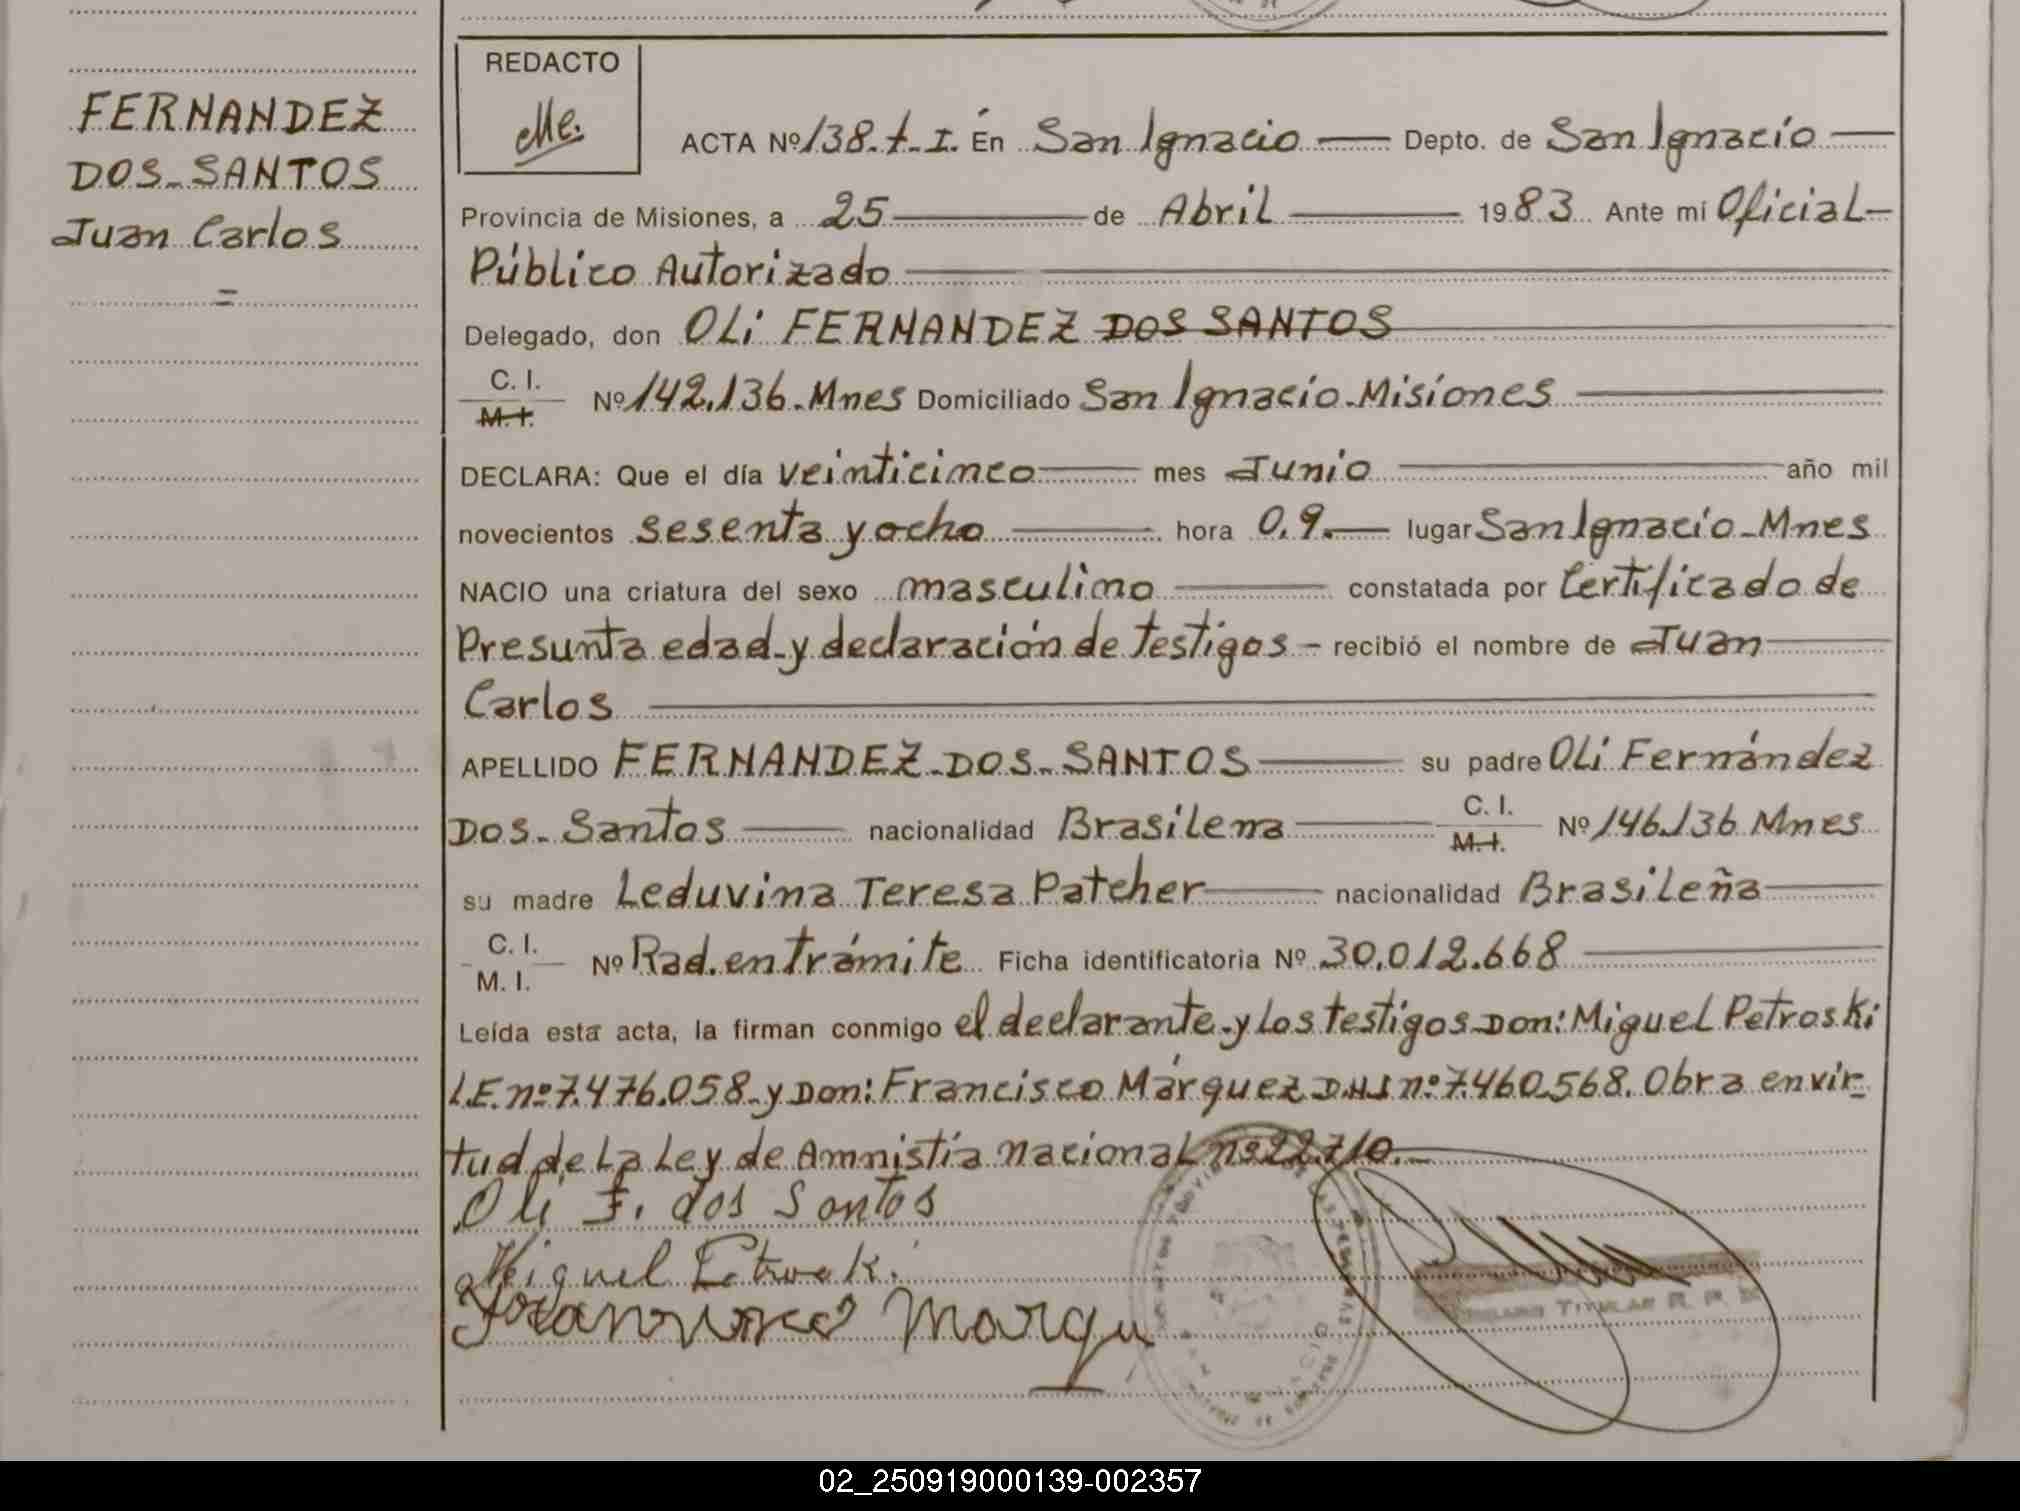 FERNANDEZ
DOS-SANTOS
Juan Carlos
=
REDACTO
ACTA Nº 138.t.I. En San Ignacio — Depto. de San Ignacio —
Provincia de Misiones, a 25 — de Abril — 1983 Ante mí Oficial —
Público Autorizado —
Delegado, don OLi FERNANDEZ DOS SANTOS
C. I.
M. I.
Nº 142.136-Mnes Domiciliado San Ignacio-Misiones —
DECLARA: Que el día veinticinco — mes Junio — año mil
novecientos sesenta y ocho — hora 0,9.— lugar San Ignacio-Mnes
NACIO una criatura del sexo masculino — constatada por Certificado de
Presunta edad-y declaración de testigos - recibió el nombre de Juan —
Carlos —
APELLIDO FERNANDEZ-DOS-SANTOS — su padre OLi Fernández
Dos-Santos — nacionalidad Brasilena —
C. I.
M. I.
Nº 146.136 Mnes
su madre Leduvina Teresa Patcher — nacionalidad Brasileña —
C. I.
M. I.
Nº Rad. en trámite Ficha identificatoria Nº 30.012.668 —
Leída esta acta, la firman conmigo el declarante-y los testigos Don: Miguel Petroski
L.E. nº 7.476.058-y Don: Francisco Márquez D.N.I nº 7.460.568. Obra en vir-
tud de La Ley de Amnistía nacional nº 22.710.—
Oli F. dos Santos
Miguel
Marqu
TITULAR R. P.
02_250919000139-002357